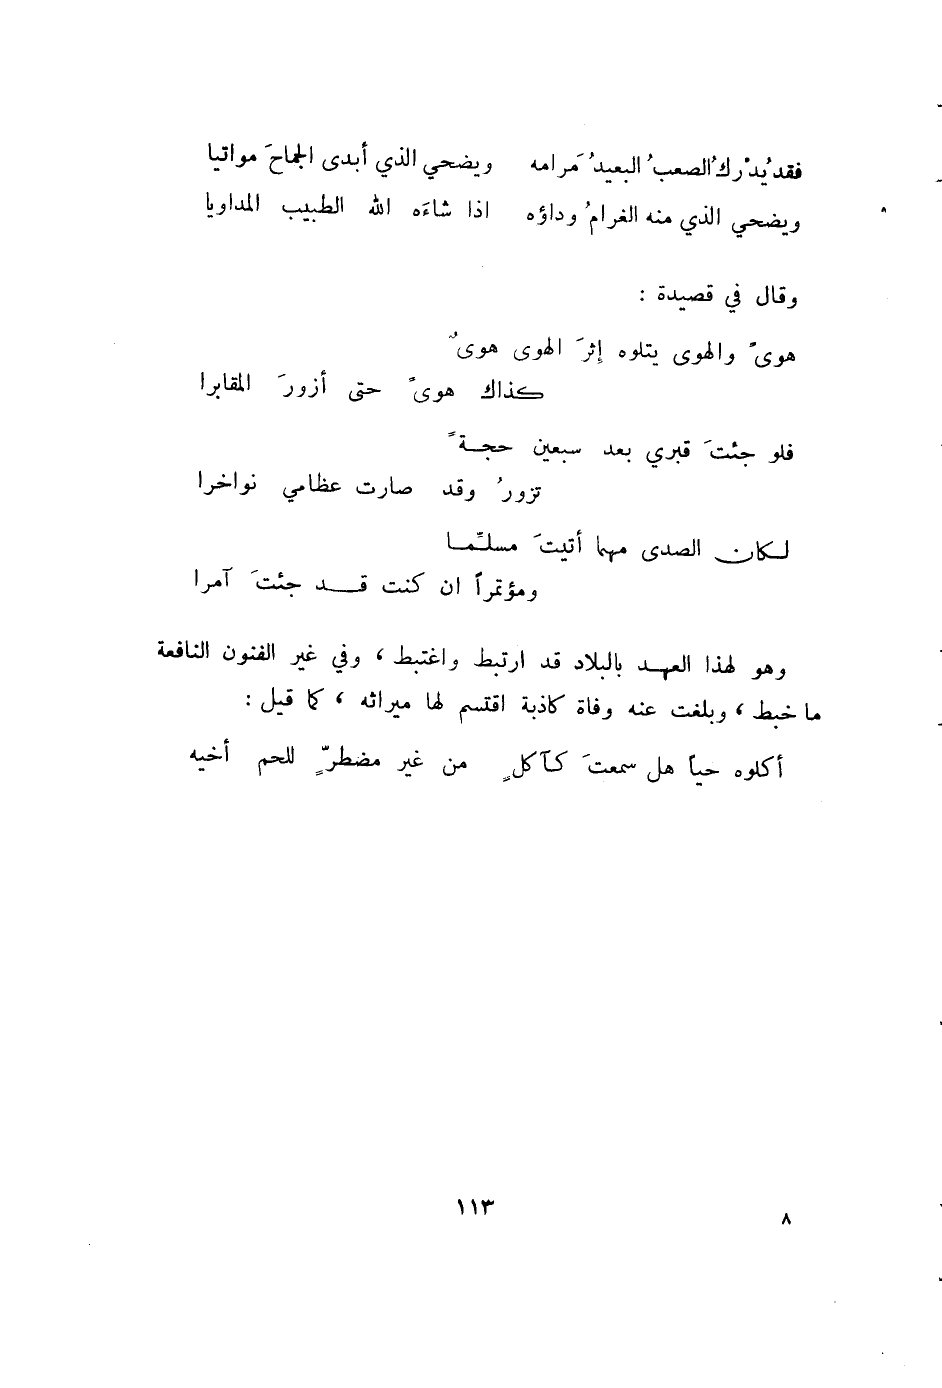 فقد يُدْركُ الصعبُ البعيدُ مَرامه ويضحي الذي أبدى الجماحَ مواتيا
ويضحي الذي منه الغرامُ وداؤه اذا شاءَه الله الطبيب المداويا
وقال في قصيدة :
هوىً والهوى يتلوه إثرَ الهوى هوىً
كذاك هوىً حتى أزورَ المقابرا
فلو جئتَ قبري بعد سبعين حجـةً
تزورُ وقد صارت عظامي نواخرا
لـكان الصدى مهما أتيتَ مسلّمـا
ومؤتمراً ان كنت قـــد جئتَ آمرا
وهو لهذا العهـد بالبلاد قد ارتبط واغتبط ، وفي غير الفنون النافعة
ما خبط ، وبلغت عنه وفاة كاذبة اقتسم لها ميراثه ، كما قيل :
أكلوه حياً هل سمعتَ كـآكلٍ من غير مضطرٍّ للحم أخيه
١١٣
٨